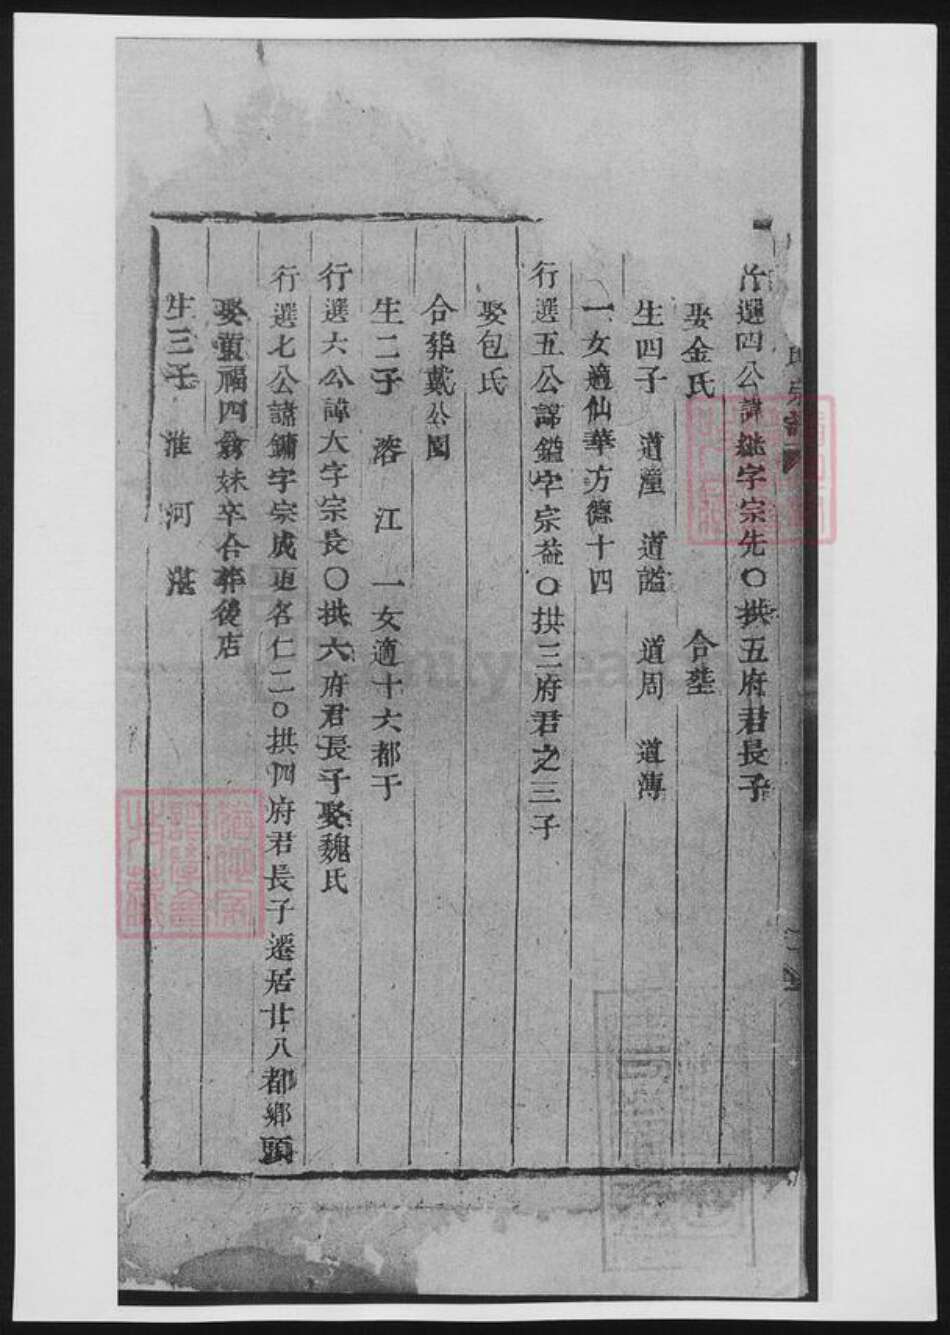 行選四公諱銚字宗先○拱五府君長子
娶金氏 合塟
生四子 道潼 道謐 道周 道溥
一女適仙華方德十四
行選五公諱鎰字宗益○拱三府君之三子
娶包氏
合葬戴公園
生二子 溶 江 一女適十六都于
行選六公諱大字宗長○拱六府君長子娶魏氏
行選七公諱鏞字宗成更名仁二○拱四府君長子遷居廿八都鄉頭
娶黃福四翁妹卒合葬後店
生三子 淮 河 湛